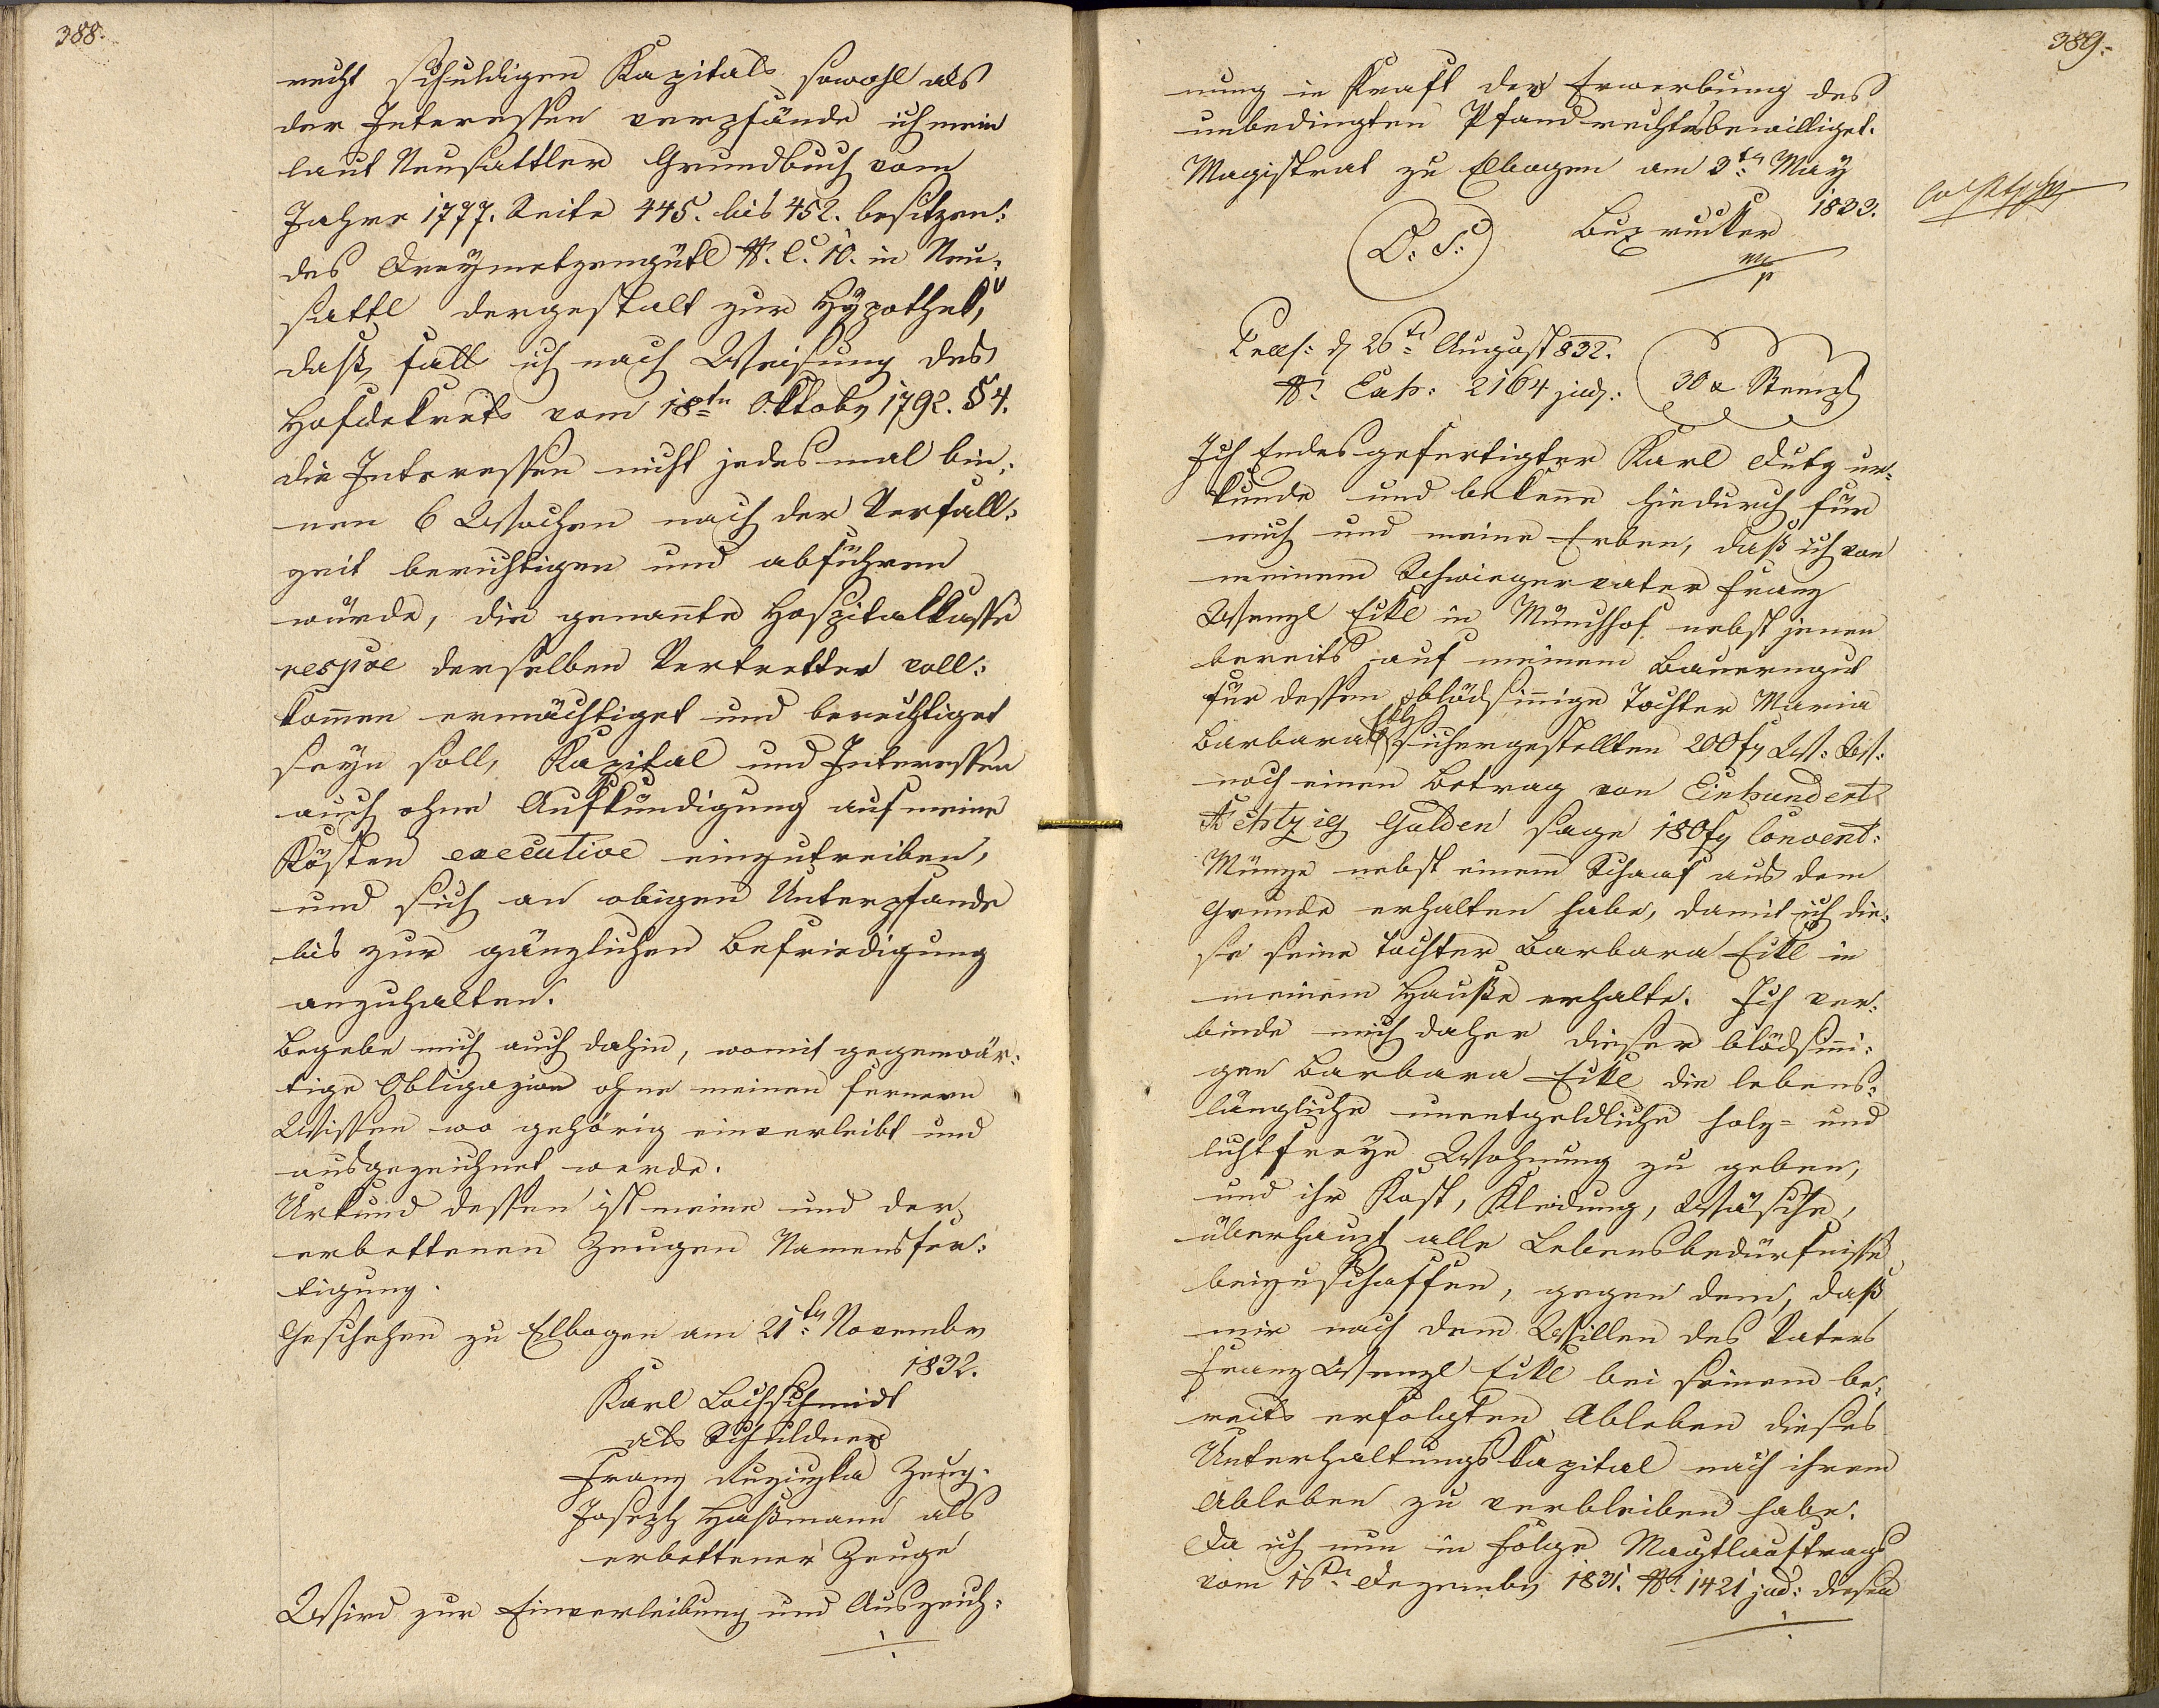 388.
recht schuldigen Kapitals sowohl als
der Interessen verpfände ich mein
laut Neusattler Grundbuch vom
Jahre 1777. Seite 445. bis 452. besitzen:
des Dreymetzengütl N. C. 10. in Neu:
sattl dergestalt zur Hÿpothek,
daß, fall ich nach Weisung des
Hofdekrets vom 18ten Oktober 1792. § 4.
die Interessen nicht jedesmal bin:
nen 6 Wochen nach der Verfall:
zeit berichtigen und abführen
würde, die genannte Hospitalkasse
respve derselben Vertretter voll:
kommen ermächtiget und berechtiget
seyn soll, Kapital und Interessen
auch ohne Aufkündigung auf meine
Kösten executive einzutreiben,
und sich an obigen Unterpfande
bis zur gänzlichen Befriedigung
anzuhalten.
Begebe mich auch dahin, womit gegenwär:
tige Obligazion ohne meinen fernern
Wissen wo gehörig einverleibt und
ausgezeichnet werde.
Urkund dessen ist meine und der
erbettenen Zeugen Namensfer:
tigung.
Geschehen zu Elbogen am 21ten November
1832.
Karl Lochschmidt
als Schuldner
Franz Zeug.
Joseph Haßmann als
erbettener Zeuge
Wird zur Einverleibung und Auszeich:
389.
nung in Kraft der Erwerbung des
unbedingten Pfandrechts bewilliget.
Magistrat zu Elbogen am 3ten May
1833.
(L: S:)
Buxrucker
mp
Praes: d 26ten August 832.
N. Exh: 2164 jud:
30 x Stempl
Ich Endesgefertigter Karl Dutz ur:
kunde und bekenne hiedurch für
mich und meine Erben, daß ich von
meinem Schwiegervater Franz
Wenzl Eckl in Münchhof nebst jenen
bereits auf meinem Bauerngut
für dessen blödsinnige Tochter Maria
Barbara Eckl sichergestellten 200 fl W: W:
noch einen Betrag von Einhundert
Achtzig Gulden sage 180 fl Convent:
Münze nebst einem Schaaf aus dem
Grunde erhalten habe, damit ich die:
se seine Tochter Barbara Eckl in
meinem Hauße erhalte. Ich ver:
binde mich daher dieser blödsinni:
gen Barbara Eckl die lebens:
längliche unentgeldliche holz- und
lichtfreye Wohnung zu geben,
und ihr Kost, Kleidung, Wäsche,
überhaupt alle Lebensbedürfnisse
beizuschaffen, gegen dem, daß
mir nach dem Willen des Vaters
Franz Wenzl Eckl bei seinem be:
reits erfolgten Ableben dieses
Unterhaltungskapital nach ihrem
Ableben zu verbleiben habe.
Da ich nun in Folge Magtlauftrags
vom 16ten Dezember 1831. N. 1421 jud: diesen